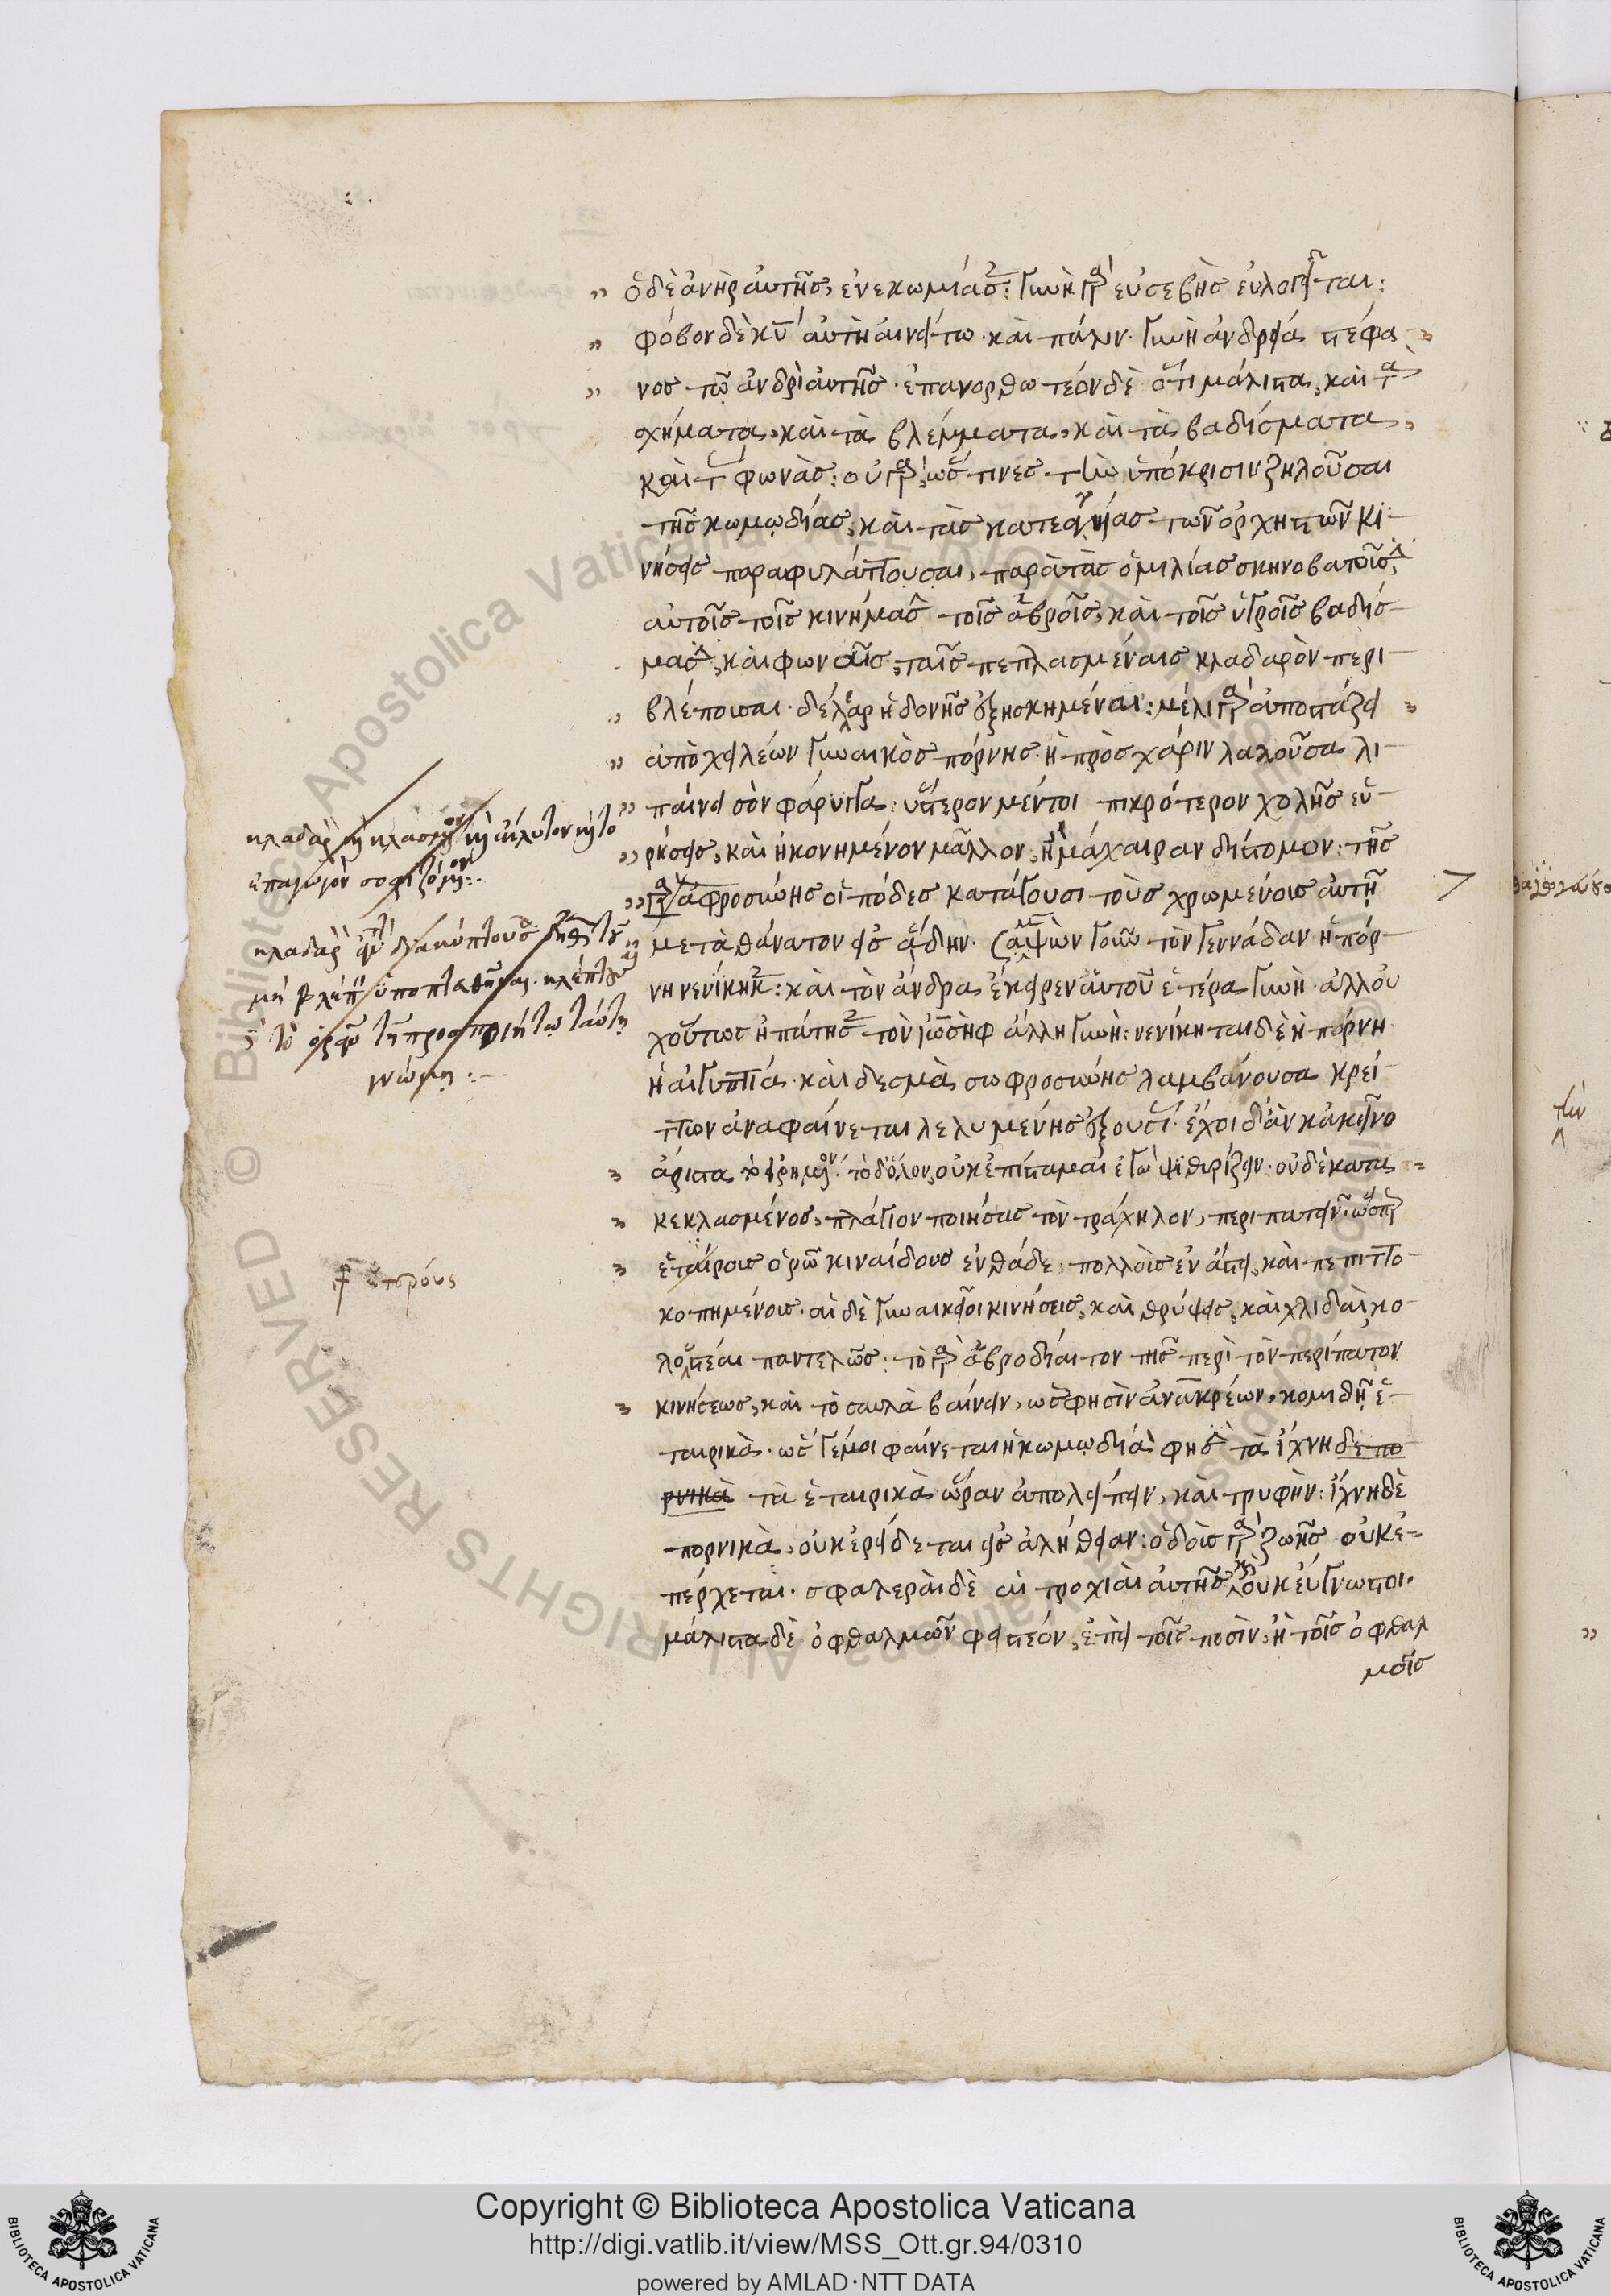 ὁ δὲ ἀνὴρ αὐτῆς, ἐνεκωμίασε: γυνὴ γὰρ εὐσεβὴς εὐλογεῖται:
φόβον δὲ κυ αὐτὴ αἰνείτω. καὶ πάλιν. γυνὴ ἀνδρεία στέφα
νος τῷ ἀνδρὶ αὐτῆς. ἐπανορθωτέον δὲ ὅτι μάλιστα, καὶ τὰ
σχήματα, καὶ τὰ βλέμματα, καὶ τὰ βαδίσματα
καὶ τὰς φωνάς: οὐ γὰρ, ὥς τινες τὴν ὑπόκρισιν ζηλοῦσαι
τῆς κωμῳδίας, καὶ τὰς κατεαγυίας τῶν ὀρχηστῶν κι
νήσεις παραφυλάττουσαι, παρὰ τὰς ὁμιλίας σκηνοβατοῦσι,
αὐτοῖς τοῖς κινήμασι τοῖς ἁβροῖς, καὶ τοῖς ὑγροῖς βαδίσ
μασι, καὶ φωναῖς, ταῖς πεπλασμέναις κλαδαρὸν περι
βλέπουσαι. δέλεαρ ἡδονῆς ἐξησκημέναι: μέλι γὰρ ἀποστάζει
ἀπὸ χειλέων γυναικὸς πόρνης. ἣ πρὸς χάριν λαλοῦσα λι
παίνει σὸν φάρυγγα: ὕστερον μέντοι πικρότερον χολῆς εὑ
ρήσεις, καὶ ἠκονημένον μᾶλλον, ἢ μάχαιραν δίστομον: τῆς
γὰρ ἀφροσύνης οἱ πόδες κατάγουσι τοὺς χρωμένους αὐτῇ
μετὰ θάνατον εἰς ᾅδην. Σαμψὼν γοῦν τὸν γεννάδαν ἡ πόρ
νη νενίκηκε: καὶ τὸν ἄνδρα ἔκειρεν αὐτοῦ ἑτέρα γυνὴ. ἀλλ' οὐ
χ οὕτως ἠπάτησε τὸν ἰωσὴφ ἄλλη γυνὴ: νενίκηται δὲ ἡ πόρνη
ἡ αἰγυπτία. καὶ δεσμὰ σωφροσύνης λαμβάνουσα κρεί
ττων ἀναφαίνεται λελυμένης ἐξουσίας. ἔχοι δ' ἂν κἀκεῖνο
ἄριστα τὸ εἰρημένον. τὸ δ' ὅλον, οὐκ ἐπίσταμαι ἐγὼ ψιθυρίζειν. οὐδὲ κατα
κεκλασμένος, πλάγιον ποιήσας τὸν τράχηλον, περιπατεῖν. ὥσπερ
ἑταίρους ὁρῶ κιναίδους ἐνθάδε, πολλοὺς ἐν ἄστει, καὶ πεπιττο
κοπημένους. αἱ δὲ γυναικεῖοι κινήσεις, καὶ θρύψεις, καὶ χλιδαὶ, κο
λουστέαι παντελῶς: τὸ γὰρ ἁβροδίαιτον τῆς περὶ τὸν περίπατον
κινήσεως, καὶ τὸ σαυλὰ βαίνειν, ὥς φησιν ἀνακρέων, κομιδῇ ἑ
ταιρικὰ. ὥς γέ μοι φαίνεται ἡ κωμῳδία φησὶ τὰ ἴχνη δὲ πο
ρνικὰ τὰ ἑταιρικὰ ὥραν ἀπολείπειν, καὶ τρυφὴν: ἴχνη δὲ
πορνικὰ, οὐκ ἐρείδεται εἰς ἀλήθειαν: ὁδοὺς γὰρ ζωῆς οὐκ ἐ
πέρχεται. σφαλεραὶ δὲ αἱ τροχιαὶ αὐτῆς καὶ οὐκ εὔγνωστοι.
μάλιστα δὲ ὀφθαλμῶν φειστέον, ἐπεὶ τοῖς ποσὶν, ἢ τοῖς ὀφθαλ
μοῖς
ἑτέρους
γνώμῃ:
Copyright © Biblioteca Apostolica Vaticana
http://digi.vatlib.it/view/MSS_Ott.gr.94/0310
powered by AMLAD·NTT DATA